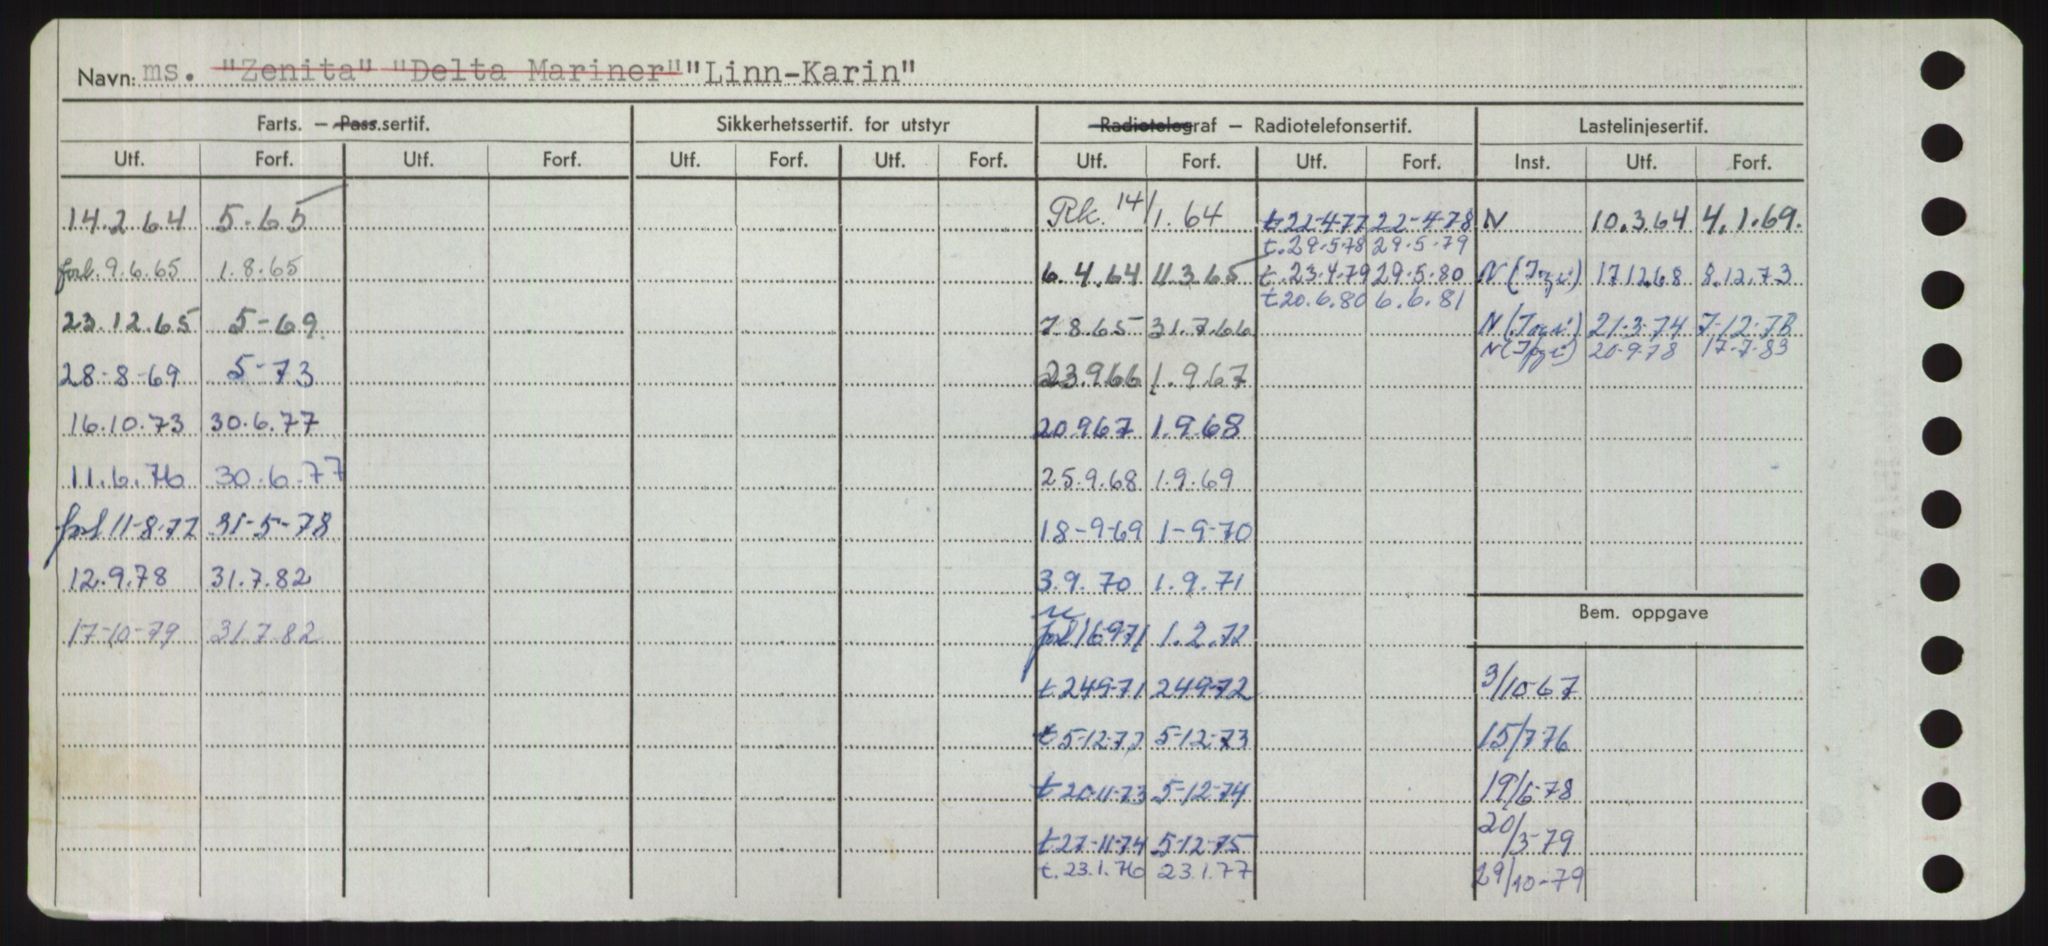 Navn: ms. "Zenita" "Delta Mariner" "Linn-Karin"
Farts. — Pass.sertif. Sikkerhetssertif. for utstyr Radiotelegraf — Radiotelefonsertif. Lastelinjesertif.
Utf. Forf. Utf. Forf. Utf. Forf. Utf. Forf. Utf. Forf. Utf. Forf. Inst. Utf. Forf.
14.2.64 5-65 Rk. 14/1.64 t 22-4-77 22-4-78 N 10.3.64 4.1.69.
t. 29.5.78 29.5.79
forl. 9.6.65 1.8.65 6.4.64 11.3.65 t. 23.4.79 29.5.80 N 17.12.68 8.12.73
t 20.6.80 6.6.81
23.12.65 5-69 7.8.65 31.7.66 N 21-3-74 7-12-78
N 20-9-78 17-7-83
28-8-69 5-73 23.9.66 1.9.67
16.10.73 30.6.77 20.9.67 1.9.68
11.6.76 30.6.77 25.9.68 1.9.69
forl 11-8-77 31-5-78 18-9-69 1-9-70
12.9.78 31.7.82 3.9.70 1.9.71
Bem. oppgave
17-10-79 31.7.82 forl 16.9.71 1.2.72
t 24-9-71 24-9-72 3/10-67
t 5-12-72 5-12-73 15/7-76
t 20-11-73 5-12-74 19/6-78
t 27-11-74 5-12-75 20/3-79
t. 23.1.76 23.1.77 29/10-79